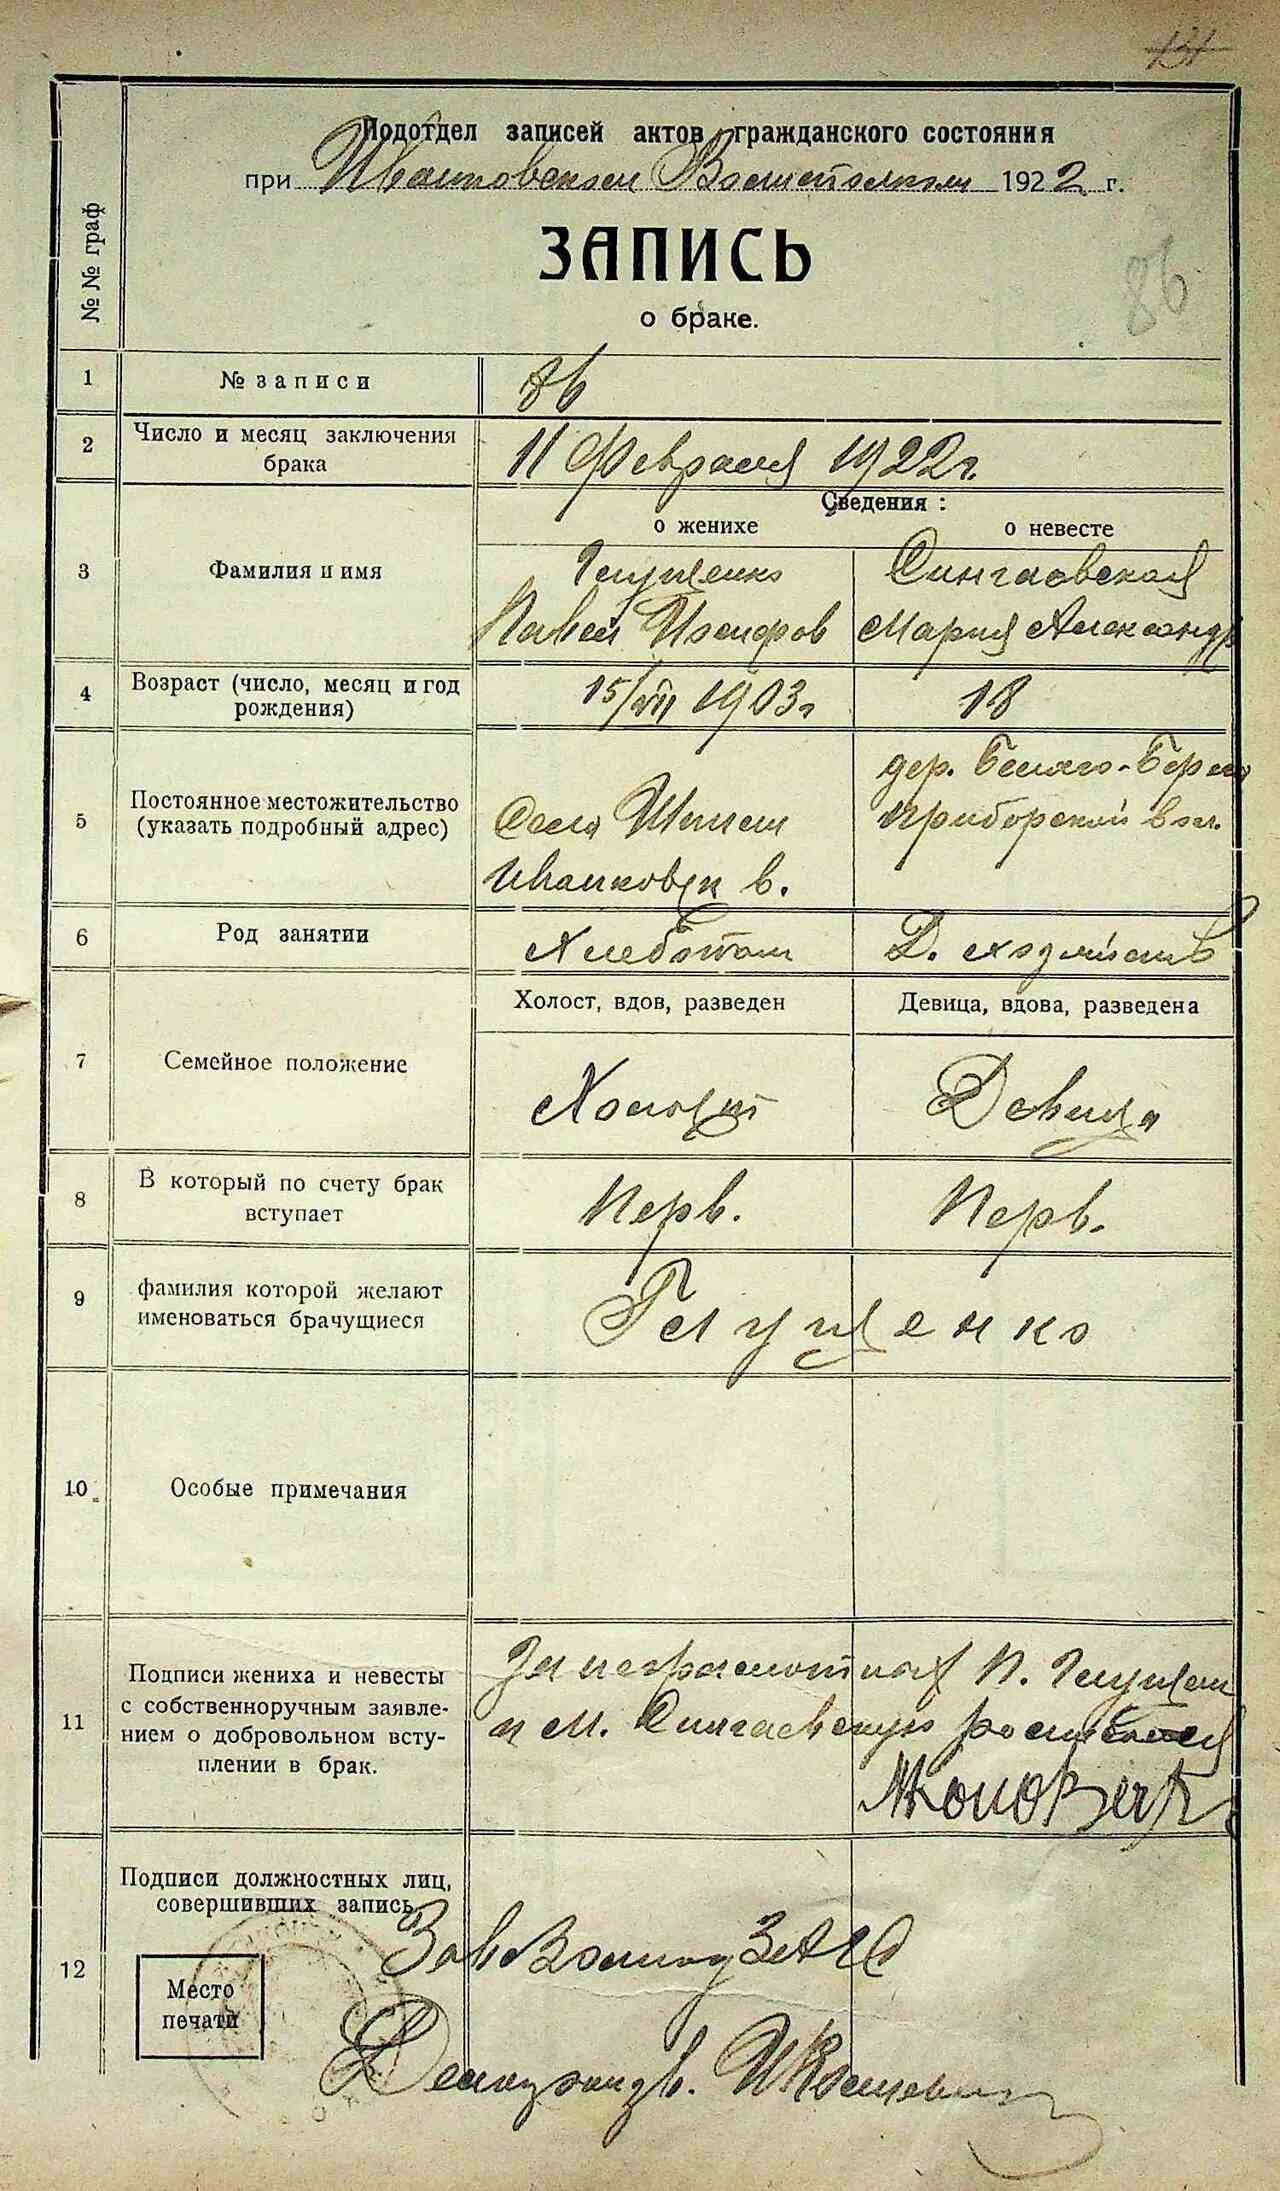 131
Подотдел записей актов гражданского состояния
при Иванковском Волисполком 1922 г.
ЗАПИСЬ
о браке.
86
№ № граф
1 № записи 86
2 Число и месяц заключения брака 11 Февраля 1922 г.
Сведения:
о женихе о невесте
3 Фамилия и имя
Глущенко Сингаевская
Павел Иосифов Мария Александр
4 Возраст (число, месяц и год рождения) 15/VII 1903 г 18
5 Постоянное местожительство (указать подробный адрес)
дер. Беляго-Берега
Село Приборской вол.
Иванковск в.
6 Род занятии Хлебопаш Д. хозяйств
Холост, вдов, разведен Девица, вдова, разведена
7 Семейное положение Холост Девица
8 В который по счету брак вступает Перв. Перв.
9 фамилия которой желают именоваться брачущиеся Глущенко
10 Особые примечания
11 Подписи жениха и невесты
с собственноручным заявле-
нием о добровольном всту-
плении в брак.
За неграмотных П. Глущен
и М. Сингаевскую
12 Подписи должностных лиц,
совершивших запись
Зав Волподзагс
Место
печати
Делопроизв.